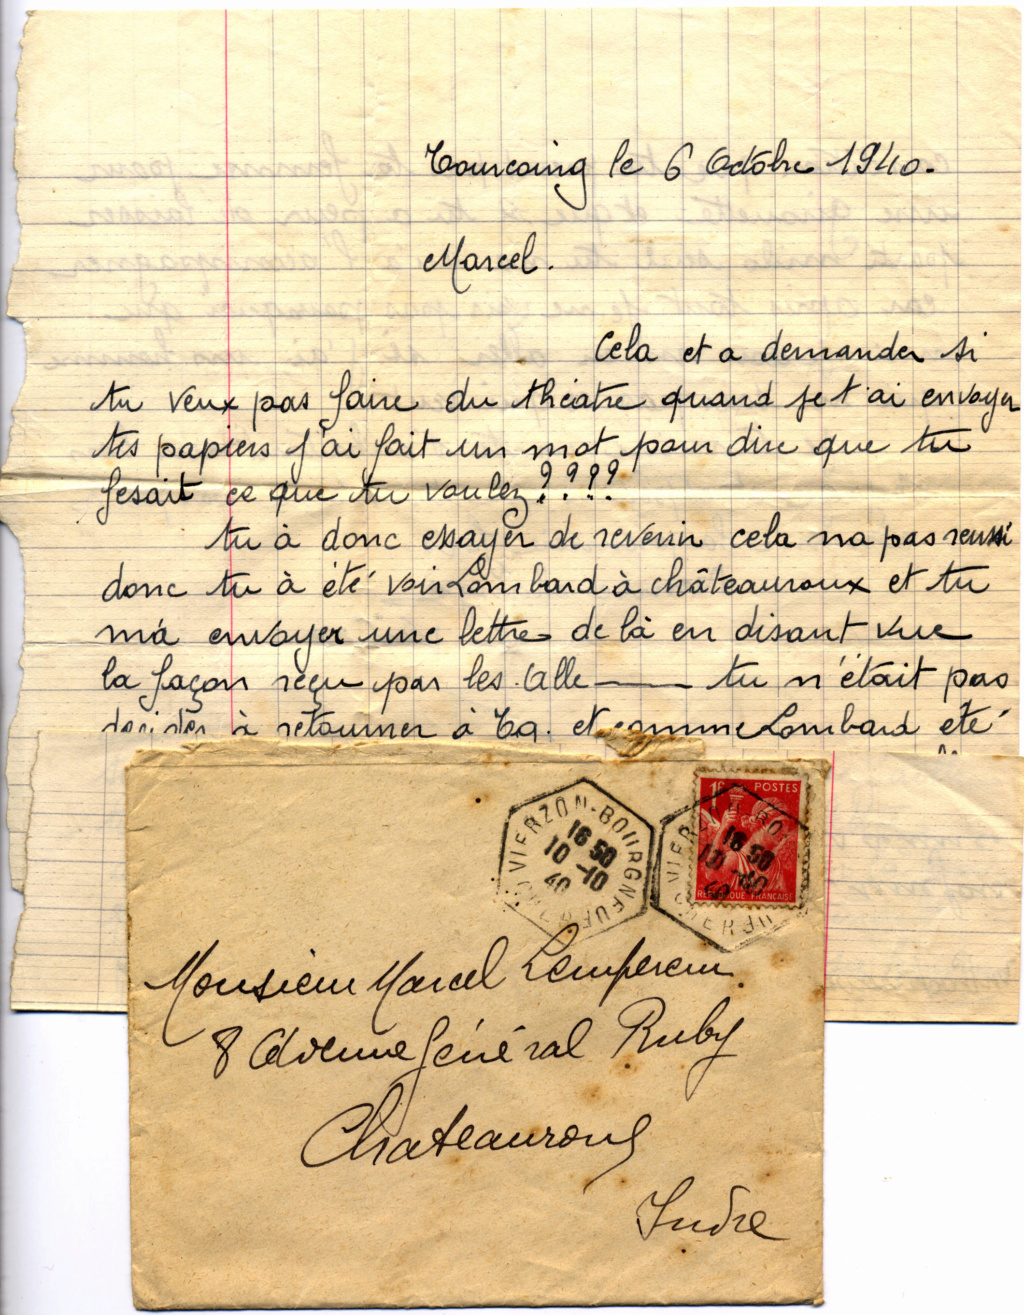 Tourcoing le 6 Octobre 1940.
Marcel.
Cela et a demander si
tu veux pas faire du théatre quand je t'ai envoyer
tes papiers j'ai fait un mot pour dire que tu
fesait ce que tu voulez ????
tu à donc essayer de revenir cela na pas reussi
donc tu à été voir Lombard à châteauroux et tu
m'a envoyer une lettre de là en disant vue
la façon reçu par les Alle—— tu n'était pas
decidés à retourner à Tg. et comme Lombard été
VIERZON-BOURGNEUF
16 50
10 -10
40
CHER
1F POSTES
REPUBLIQUE FRANÇAISE
VIERZON-BO
16 50
10 -10
40
CHER
Monsieur Marcel Lempereur
8 Avenue Général Ruby
Chateauroux
Indre